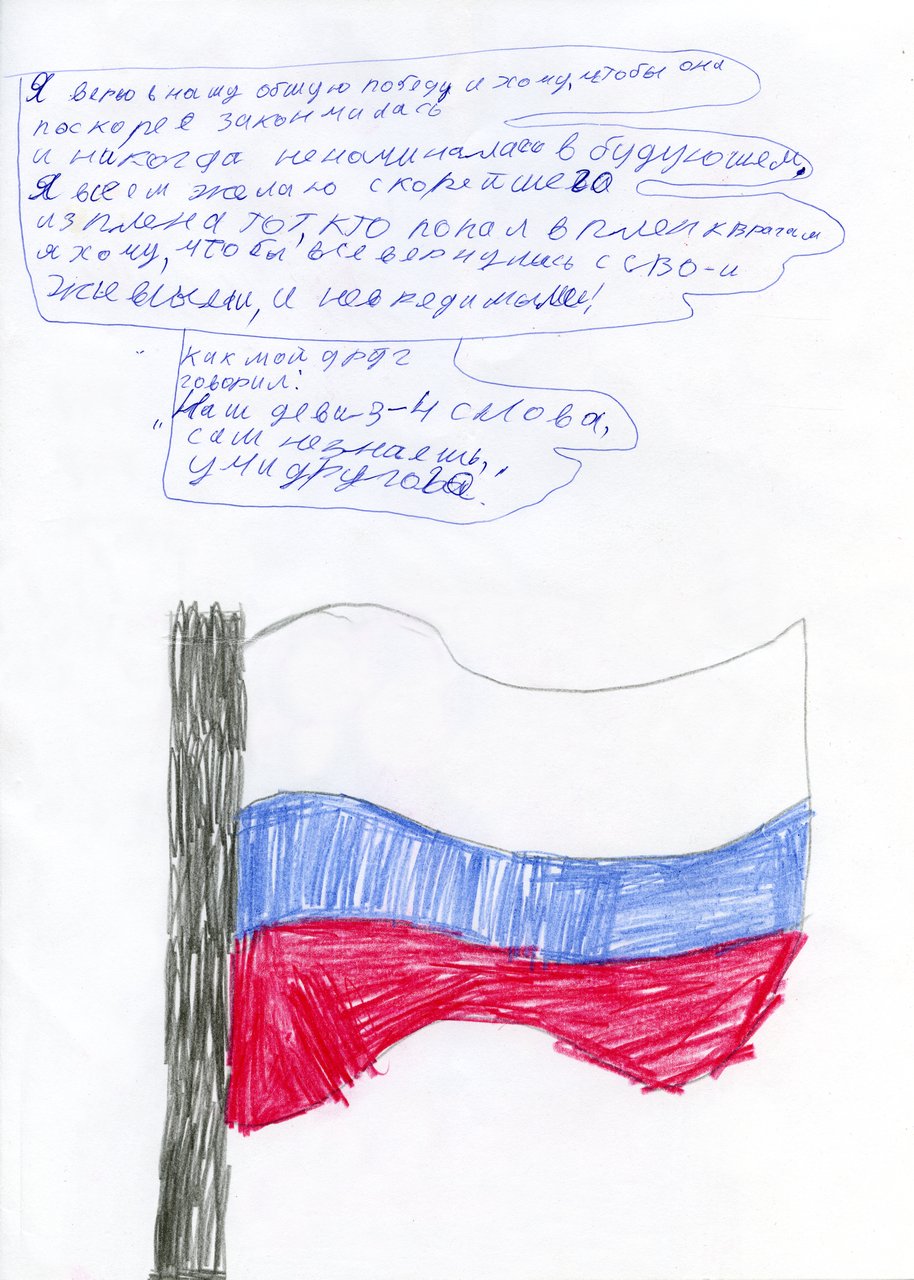 Я верю в нашу общую победу и хочу, чтобы она
поскорее закончилась
и никогда неначиналась в будующем,
Я всем желаю скорейшего
из плена тот, кто попал в плен к врагам
я хочу, чтобы все вернулись с СВО-и
живыми, и невредимыми!
как мой друг
говорил:
"Наш девиз-4 слова,
сам незнаешь,
учи другова."